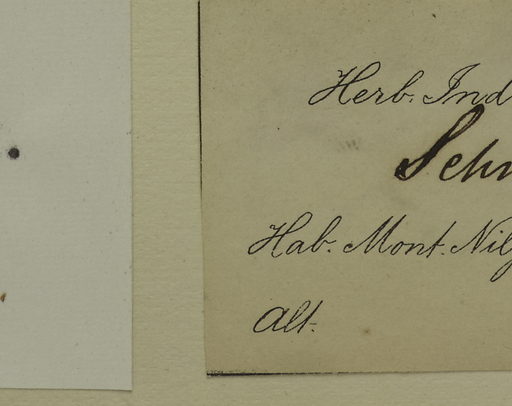 Herb. Ind
Schm
Hab. Mont. Nilg
Alt.